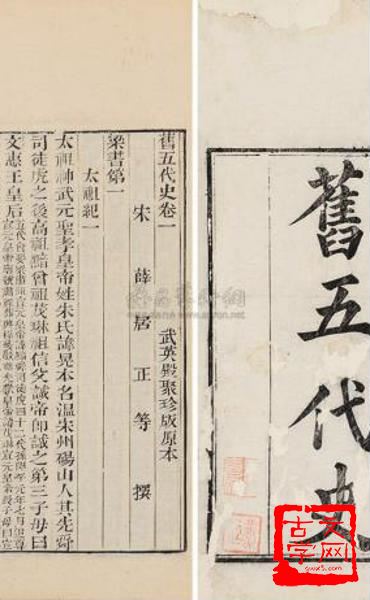 舊五代史
舊五代史卷一
武英殿聚珍版原本
宋薛居正等撰
梁書第一
太祖紀一
太祖神武元聖孝皇帝姓朱氏諱晃本名溫宋州碭山人其先舜
司徒虎之後高祖黯曾祖茂琳祖信父誠帝即誠之第三子母曰
文惠王皇后
古字网
gwx5.com